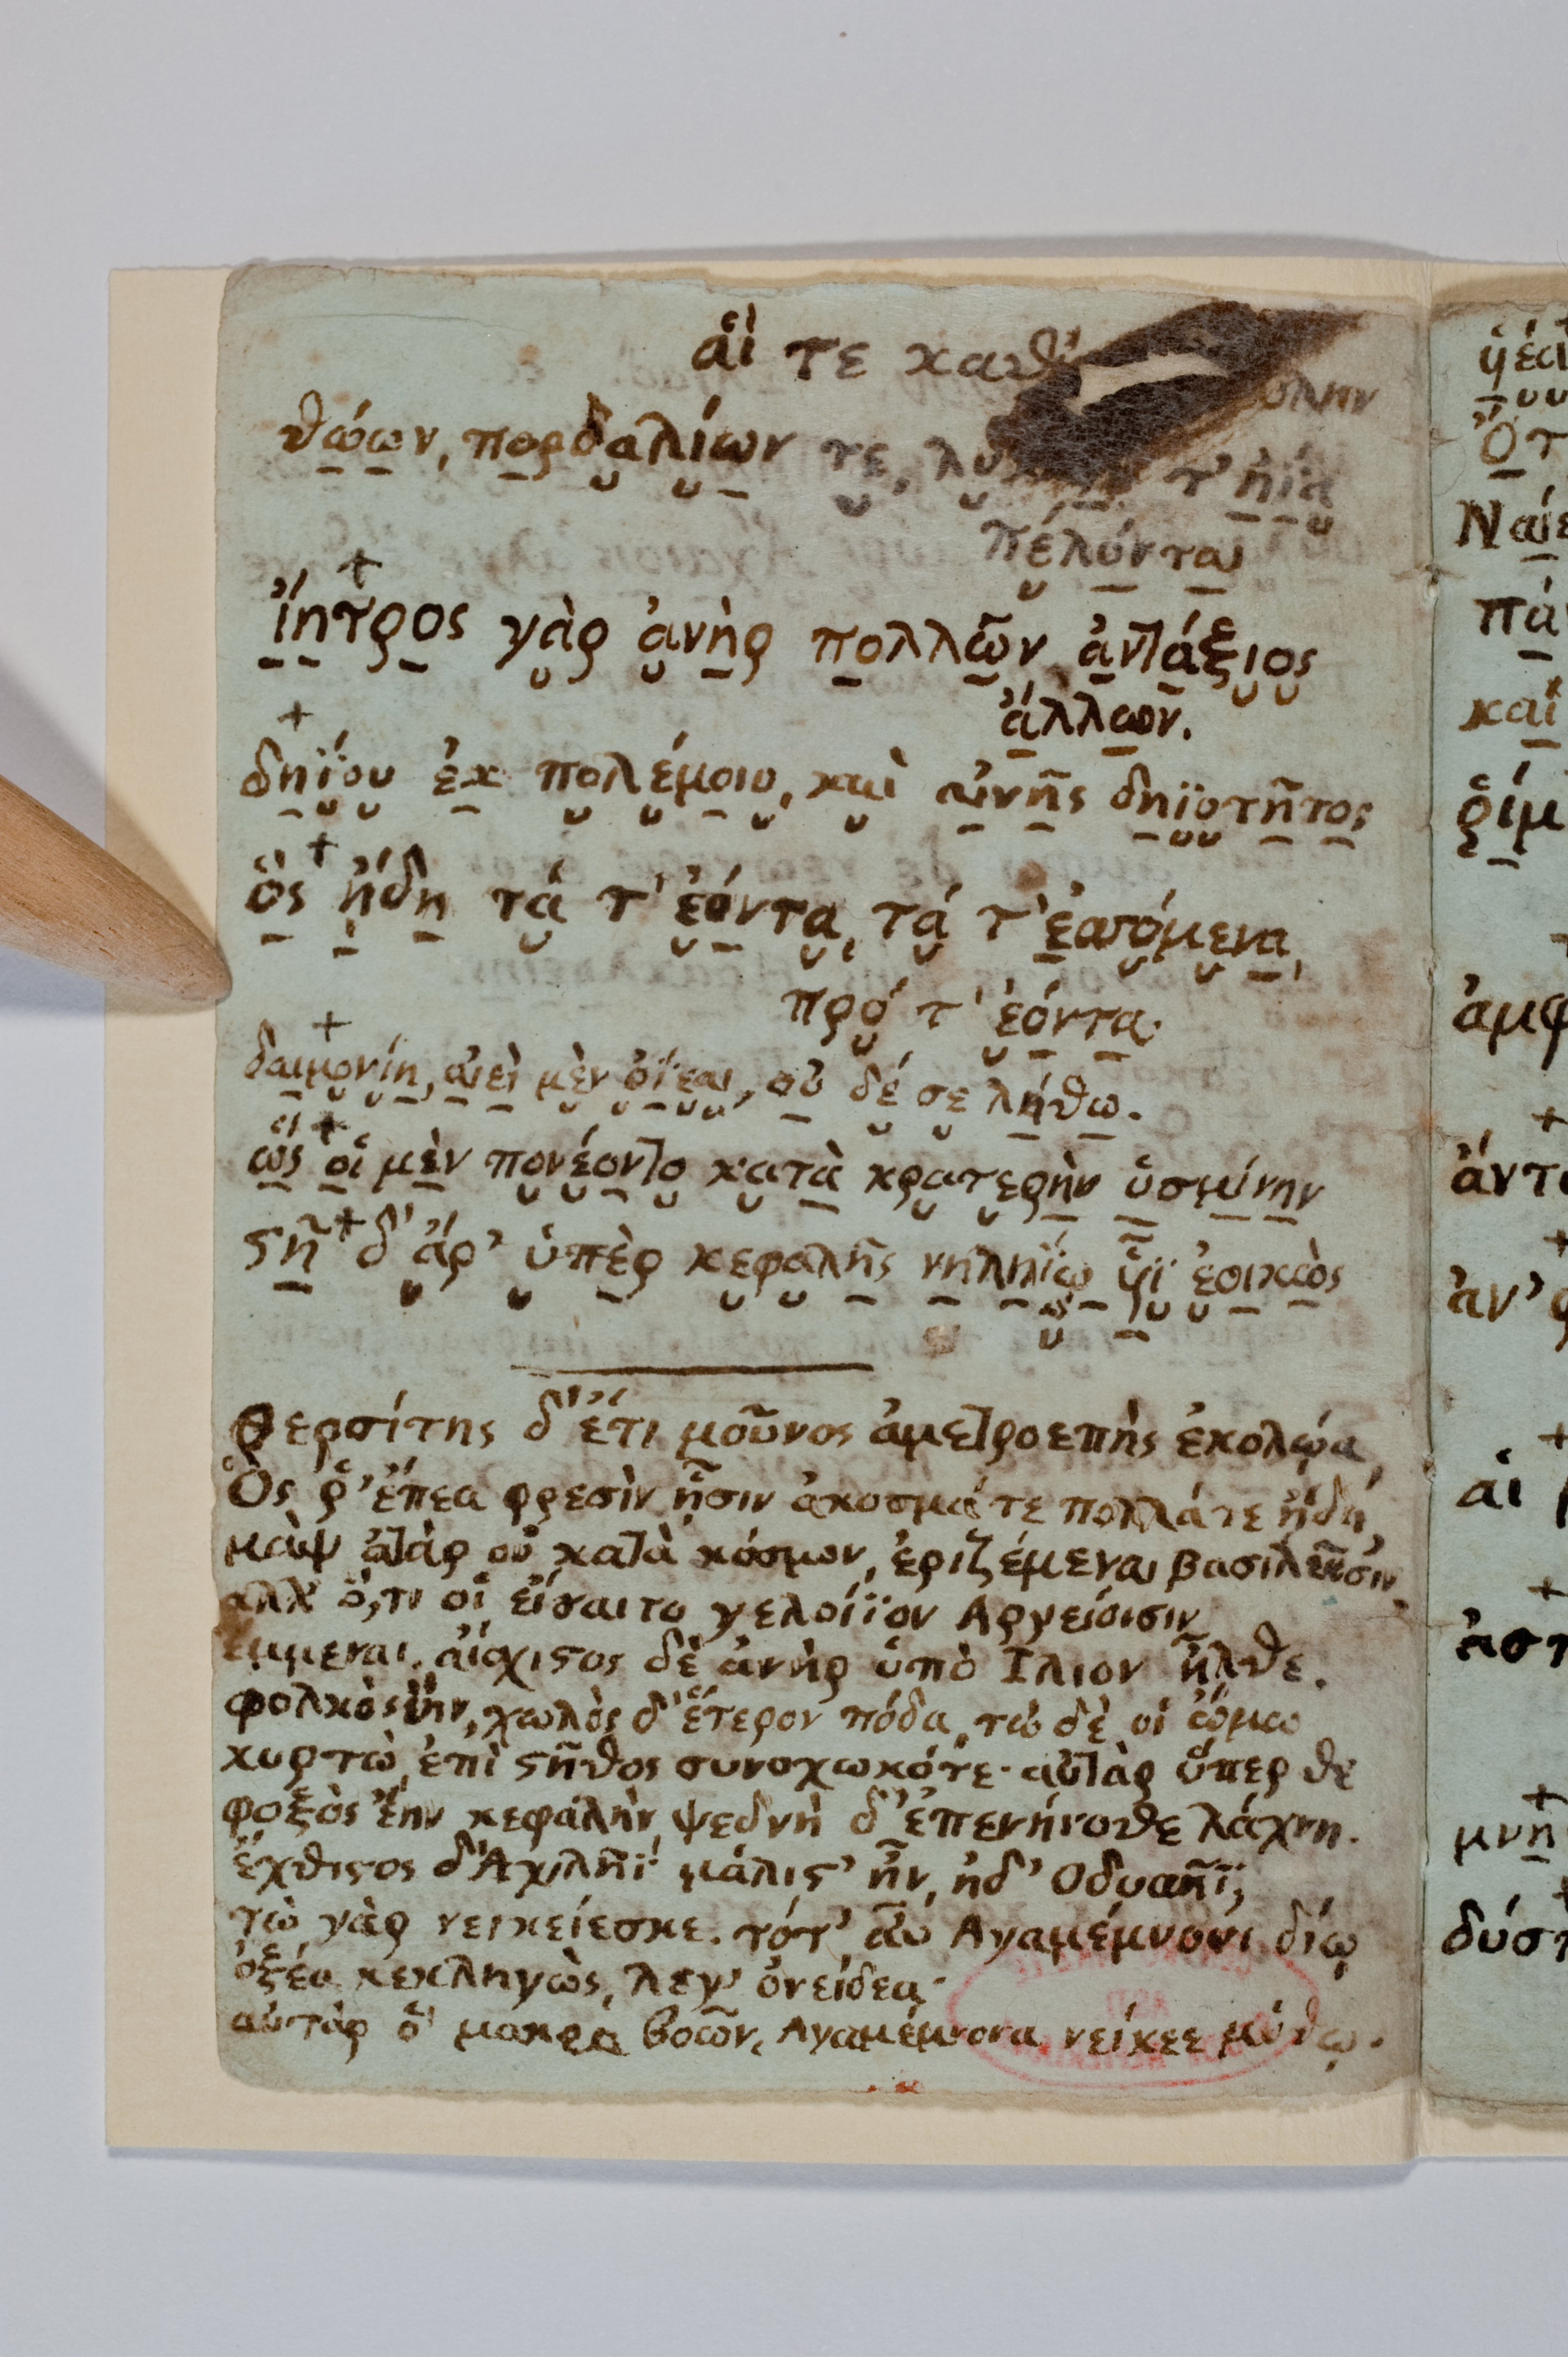 αἵ τε καθ' ὕλην
θώων, πορδαλίων τε, λύκων τ' ἠΐα
πέλονται
ἵητρος γὰρ ἀνὴρ πολλῶν ἀντάξιος
ἄλλων.
δηΐου ἐκ πολέμοιο, καὶ αἰνῆς δηϊοτῆτος
ὃς ᾔδη τά τ' ἐόντα, τά τ' ἐσσόμενα,
πρό τ' ἐόντα.
δαιμονίη, αἰεὶ μὲν ὀΐεαι, οὐ δέ σε λήθω.
ὣς οἱ μὲν πονέοντο κατὰ κρατερὴν ὑσμίνην
στῆ δ' ἄρ' ὑπὲρ κεφαλῆς νηληΐῳ υἷϊ ἐοικὼς
Θερσίτης δ' ἔτι μοῦνος ἀμετροεπὴς ἐκολῴα,
Ὃς ῥ' ἔπεα φρεσὶν ᾗσιν ἄκοσμά τε πολλά τε ᾔδη,
μὰψ ἀτὰρ οὐ κατὰ κόσμον, ἐριζέμεναι βασιλεῦσιν
ἀλλ' ὅ,τι οἱ εἴσαιτο γελοίϊον Αργείοισιν
ἔμμεναι. αἴσχιστος δὲ ἀνὴρ ὑπὸ Ιλιον ἦλθε.
φολκὸς ἔην, χωλὸς δ' ἕτερον πόδα, τὼ δέ οἱ ὤμω
κυρτὼ, ἐπὶ στῆθος συνοχωκότε· αὐτὰρ ὕπερθε
φοξὸς ἔην κεφαλὴν, ψεδνὴ δ' ἐπενήνοθε λάχνη.
ἔχθιστος δ' Αχιλῆϊ μάλιστ' ἦν, ἠδ' Οδυσῆϊ,
τὼ γὰρ νεικείεσκε. τότ' αὖ Αγαμέμνονι δίῳ
ὀξέα κεκληγὼς, λεγ' ὀνείδεα·
αὐτάρ ὁ μακρα βοῶν, Αγαμέμνονα νείκεε μύθῳ.